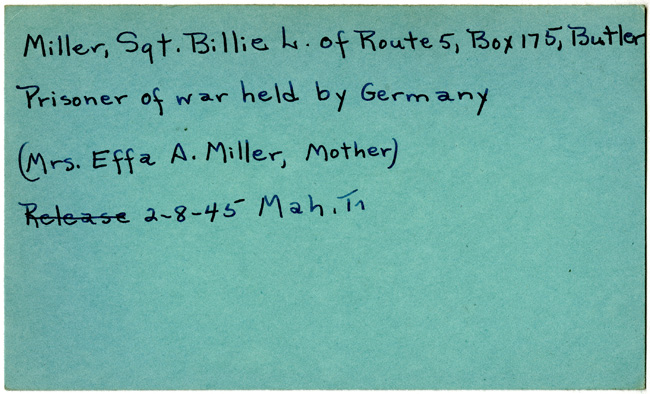 Miller, Sgt. Billie L. of Route 5, Box 175, Butler
Prisoner of war held by Germany
(Mrs. Effa A. Miller, Mother)
Release 2-8-45 Mah. Tr